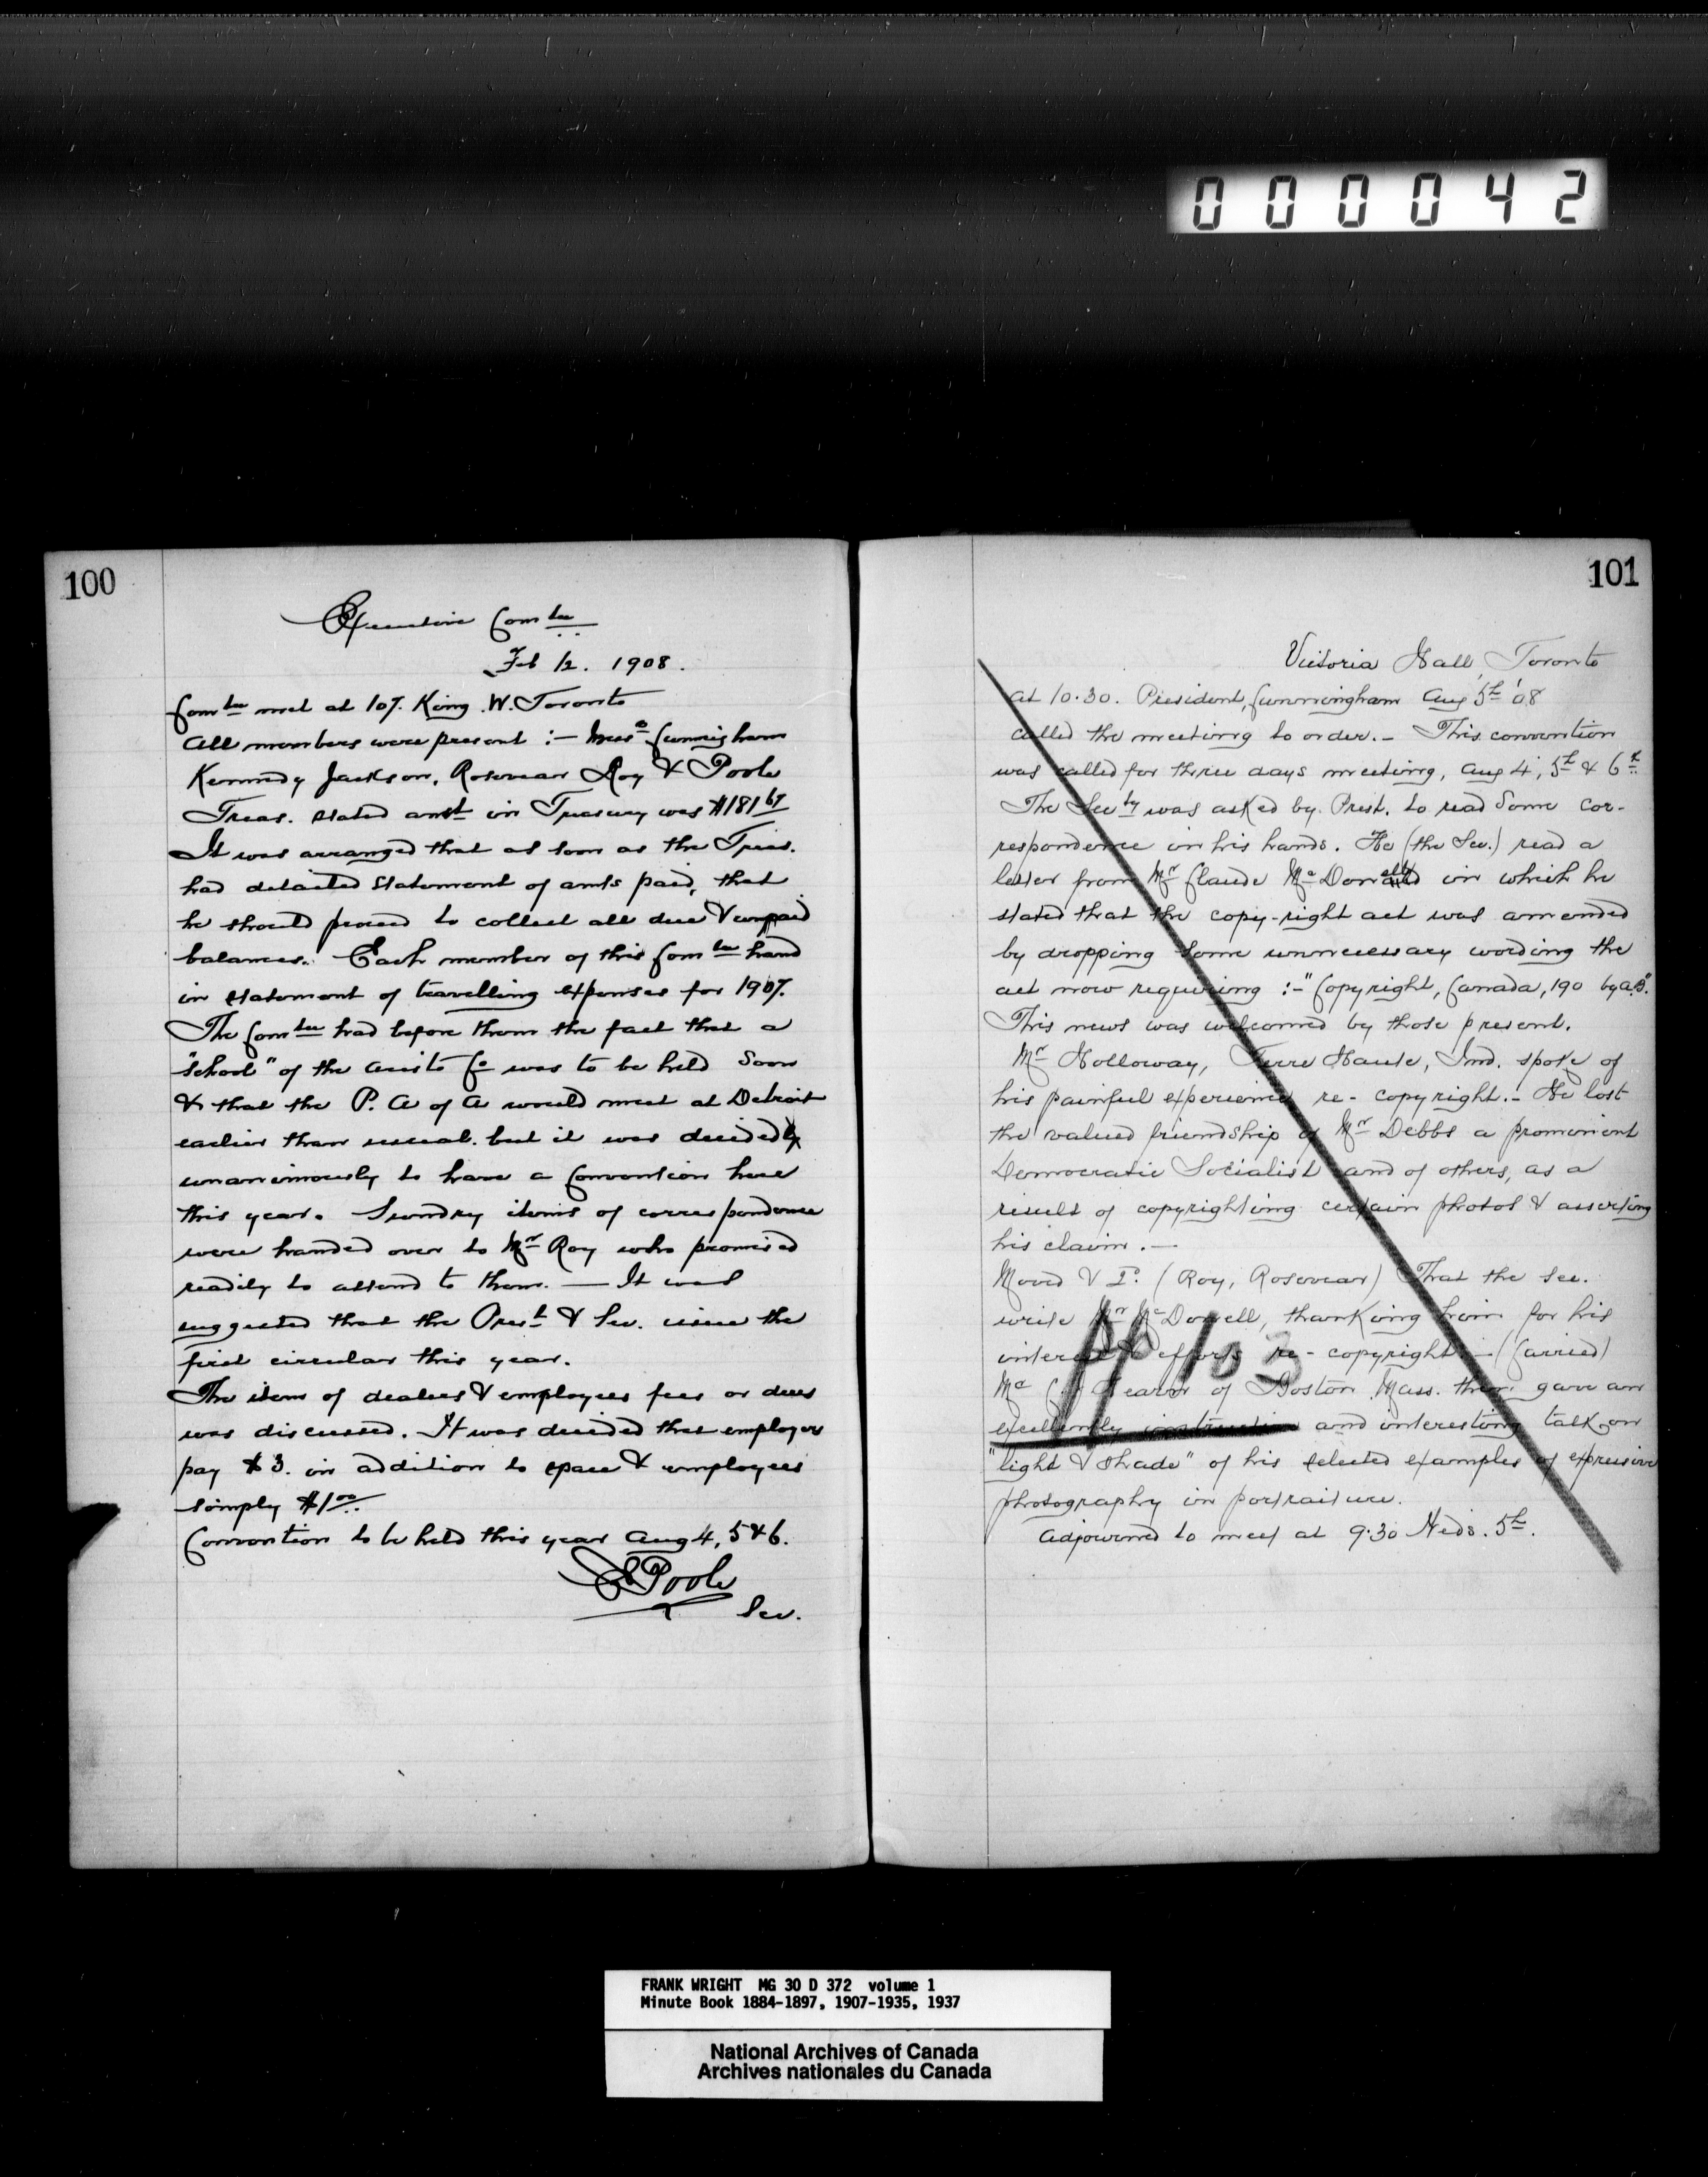 000042
100
Executive Comtee
Feb 12. 1908.
Comtee met at 107. King .W. Toronto
All members were present :— Cunningham
Kennedy Jackson, Rosevear Roy & Poole
Treas. stated amt in Treasury was $181 67
It was arranged that as soon as the Treas.
had detailed statement of amts paid, that
he should proceed to collect all due & unpaid
balances. Each member of this Comtee hand
in statement of travelling expenses for 1907.
The Comtee had before them the fact that a
"school" of the Aristo Co was to be held soon
& that the P. A of A would meet at Detroit
earlier than usual. but it was decided
unanimously to have a Convention here
this year. Sundry items of correspondence
were handed over to Mr Roy who promised
readily to attend to them. — It was
suggested that the Prest & Sec. issue the
first circular this year.
The item of dealers & employees fees or dues
was discussed. It was decided that employers
pay $3. in addition to space & employees
simply $1 00.
Convention to be held this year Aug 4, 5 & 6.
Poole
Sec.
101
Victoria Hall, Toronto
At 10.30. President, Cunningham Aug 5th '08
called the meeting to order. – This convention
was called for three days meeting, Aug 4, 5th & 6th
The Secty was asked by Prest. to read some cor-
respondence in his hands. He (the Sec.) read a
letter from Mr Claude Mc in which he
stated that the copy-right act was amended
by dropping some unnecessary wording the
act now requiring :– "Copyright, Canada, 190 by A.B."
This news was welcomed by those present.
Mr Holloway, Terre Haute, Ind. spoke of
his painful experience re- copyright. – He lost
the valued friendship of Mr Debbs a prominent
Democratic Socialist and of others, as a
result of copyrighting certain photos & asserting
his claim. —
Moved & 2o. (Roy, Rosevear) That the Sec.
write Mr McDowell, thanking him for his
interest & efforts re- copyright – (Carried)
P 103
of Boston Mass. then gave an
excellently instructive and interesting talk on
"light & shade" of his selected examples of expressive
photography in portraiture.
Adjourned to meet at 9.30 Weds. 5th.
FRANK WRIGHT MG 30 D 372 volume 1
Minute Book 1884-1897, 1907-1935, 1937
National Archives of Canada
Archives nationales du Canada